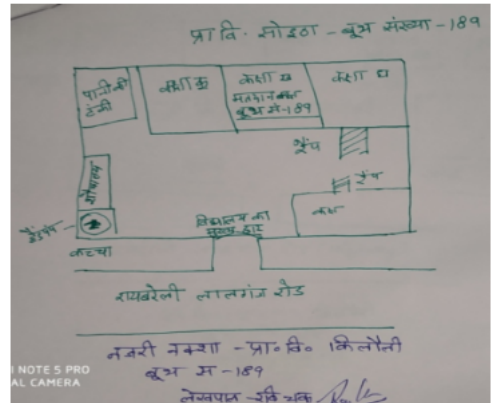 प्रा वि. सोइठा - बूथ संख्या - 189
पानी की
टंकी
कक्षा क
कक्षा ख
मतदान कक्ष
बूथ सं-189
कक्षा ग
रैंप
रैंप
शौचालय
कक्ष
हैंडपंप
विद्यालय का
मुख्य द्वार
कच्चा
रायबरेली लालगंज रोड
नजरी नक्शा - प्रा० वि० किलौली
बूथ स - 189
लेखपाल - रवि
NOTE 5 PRO
AL CAMERA